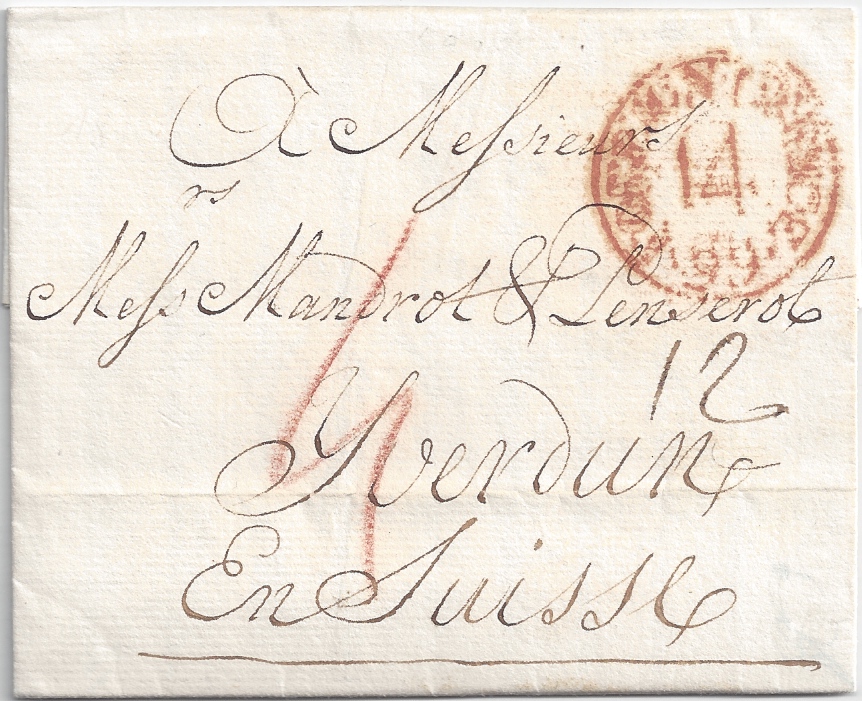 À Messieurs
14
rs
Mess Mandrot & Penserot
12
Yverdun
En Suisse